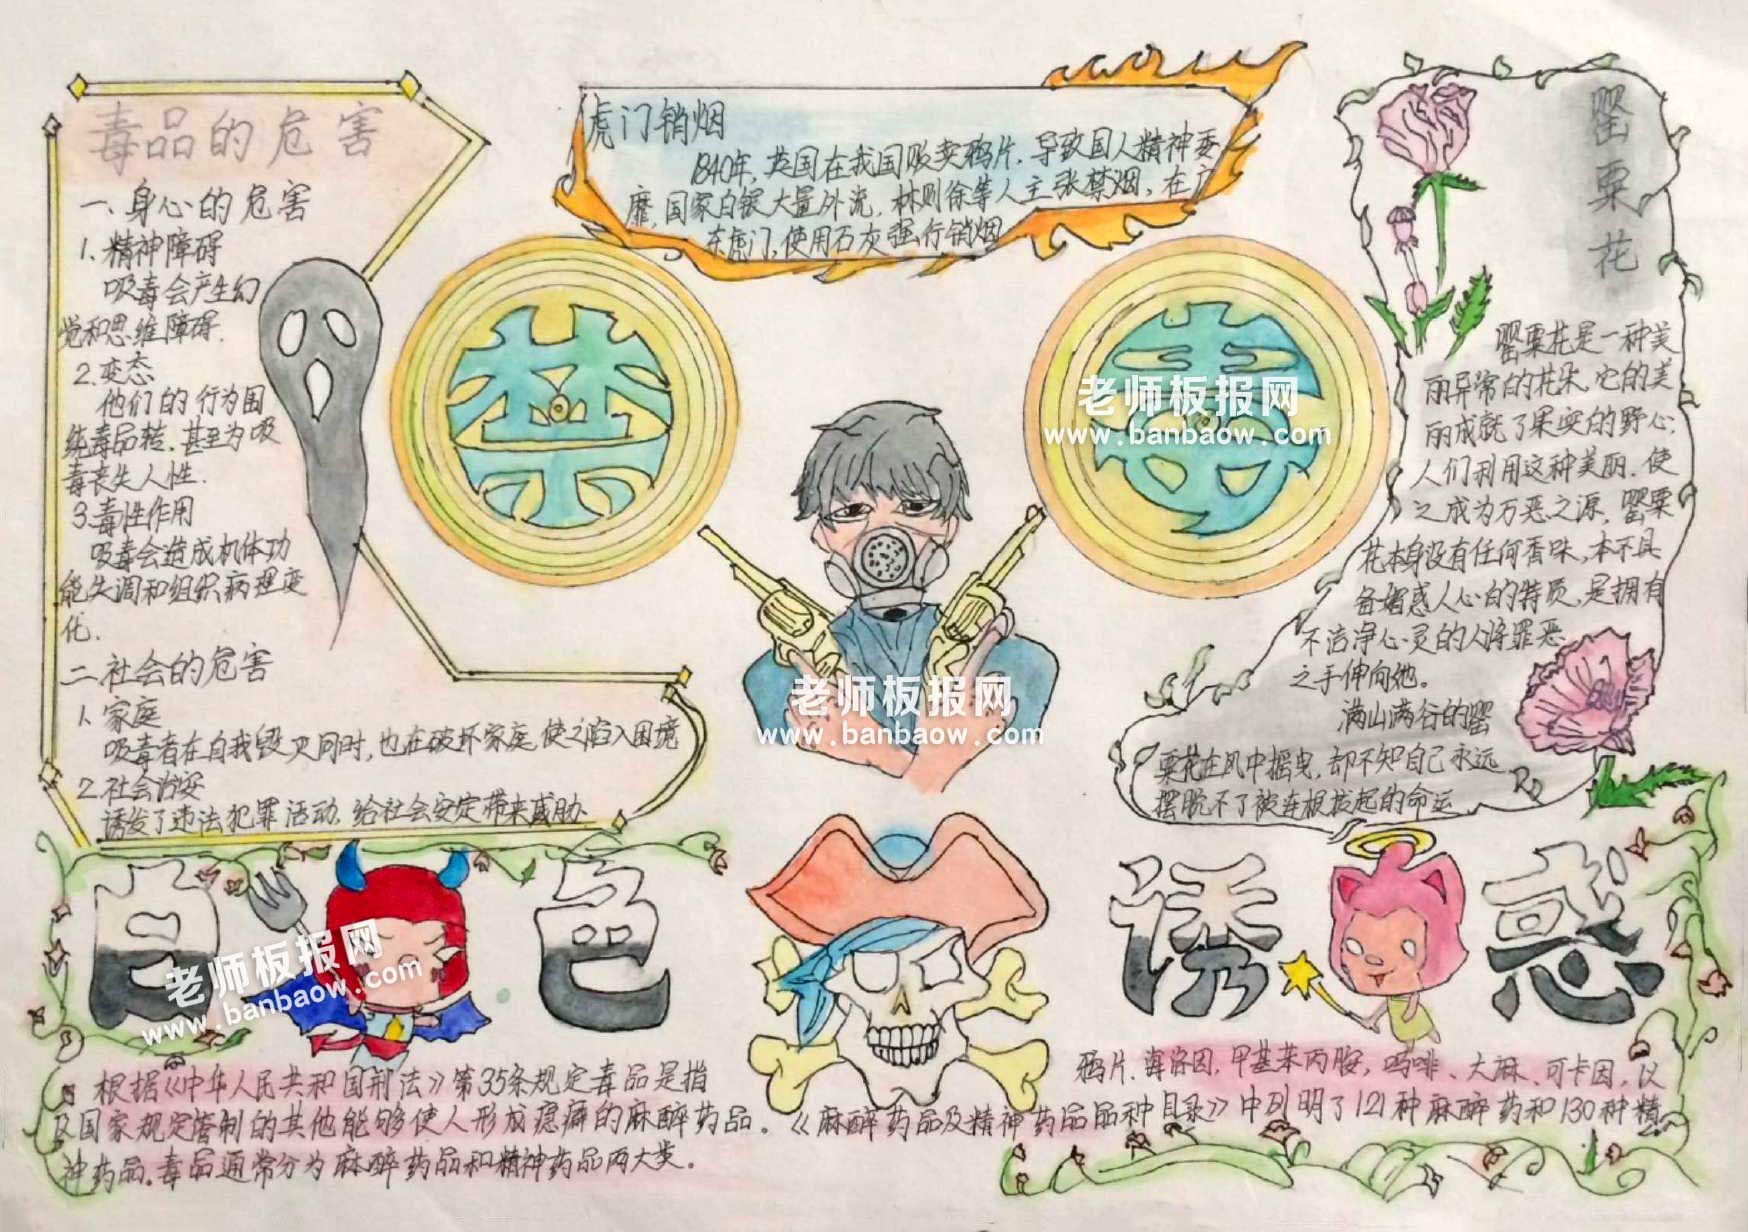 毒品的危害
一、身心的危害
1、精神障碍
吸毒会产生幻
觉和思维障碍.
2.变态
他们的行为围
绕毒品转、甚至为吸
毒丧失人性.
3.毒性作用
吸毒会造成机体功
能失调和组织病理变
化.
二.社会的危害
1.家庭
吸毒者在自我毁灭同时,也在破坏家庭,使之陷入困境
2.社会治安
诱发了违法犯罪活动,给社会安定带来威胁.
虎门销烟
1840年,英国在我国贩卖鸦片,导致国人精神委
靡,国家白银大量外流,林则徐等人主张禁烟,在广
东虎门,使用石灰强行销烟
禁
毒
老师板报网
www.banbaow.com
罂
粟
花
罂粟花是一种美
丽异常的花朵,它的美
丽成就了果实的野心;
人们利用这种美丽,使
之成为万恶之源,罂粟
花本身没有任何香味,本不具
备媚惑人心的特质,是拥有
不洁净心灵的人将罪恶
之手伸向她。
满山满谷的罂
粟花在风中摇曳,却不知自己永远
摆脱不了被连根拔起的命运
老师板报网
www.banbaow.com
白色诱惑
老师板报网
www.banbaow.com
根据《中华人民共和国刑法》第35条规定毒品是指
鸦片、海洛因,甲基苯丙胺,吗啡、大麻、可卡因,以
及国家规定管制的其他能够使人形成瘾癖的麻醉药品。《麻醉药品及精神药品品种目录》中列明了121种麻醉药和130种精
神药品。毒品通常分为麻醉药品和精神药品两大类。